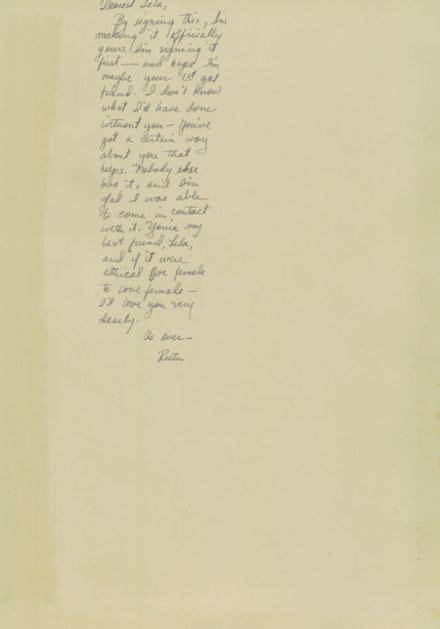 Dearest Lela,
By signing this, I'm
making it officially
yours. I'm signing it
first — and hope I'm
maybe your 1st gal
friend. I don't know
what I'd have done
without you — you've
got a certain way
about you that
helps. Nobody else
has it, and I'm
glad I was able
to come in contact
with it. You're my
best friend, Lela,
and if it were
ethical for female
to love female —
I'd love you very
dearly.
As ever —
Ruth